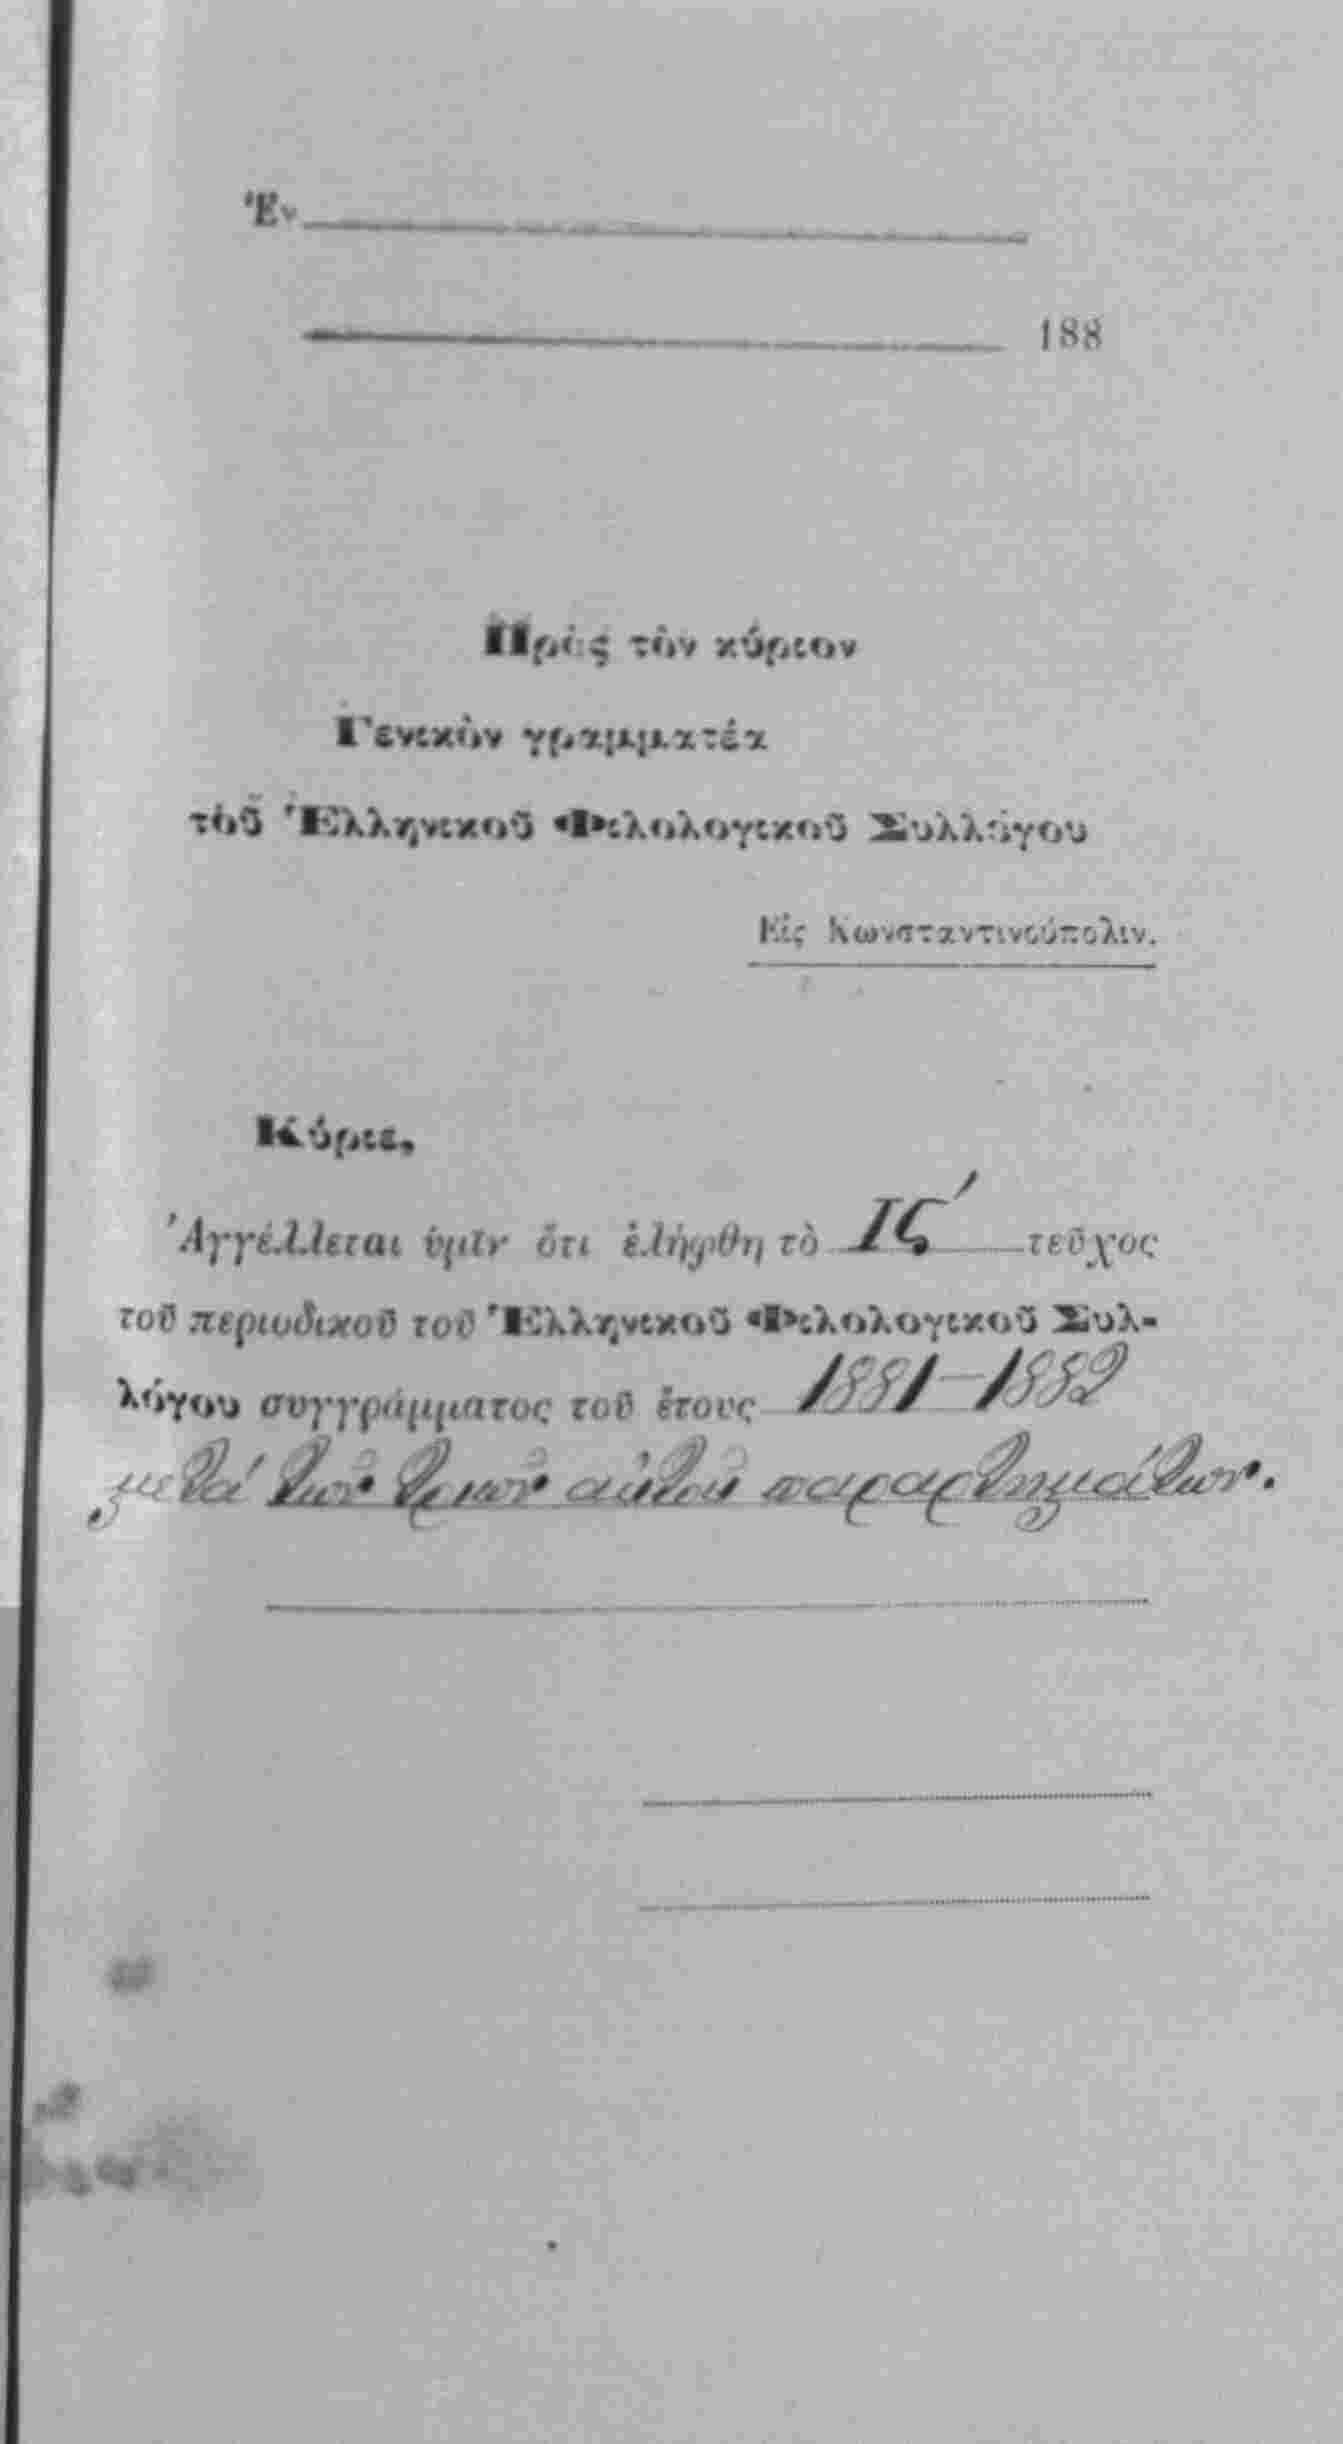 Ἐν
188
Πρὸς τὸν κύριον
Γενικὸν γραμματέα
τοῦ Ἑλληνικοῦ Φιλολογικοῦ Συλλόγου
Εἰς Κωνσταντινούπολιν.
Κύριε,
Ἀγγέλλεται ὑμῖν ὅτι ἐλήφθη τὸ Ιζ΄ τεῦχος
τοῦ περιοδικοῦ τοῦ Ἑλληνικοῦ Φιλολογικοῦ Συλ-
λόγου συγγράμματος τοῦ ἔτους 1881–1882
μετά τῶν τριῶν αὐτοῦ παραρτημάτων.